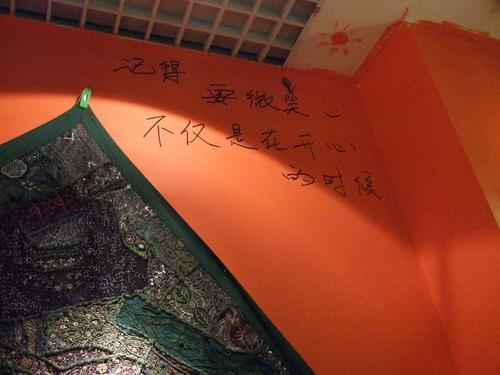 记得
要微笑
不仅是在开心
的时候